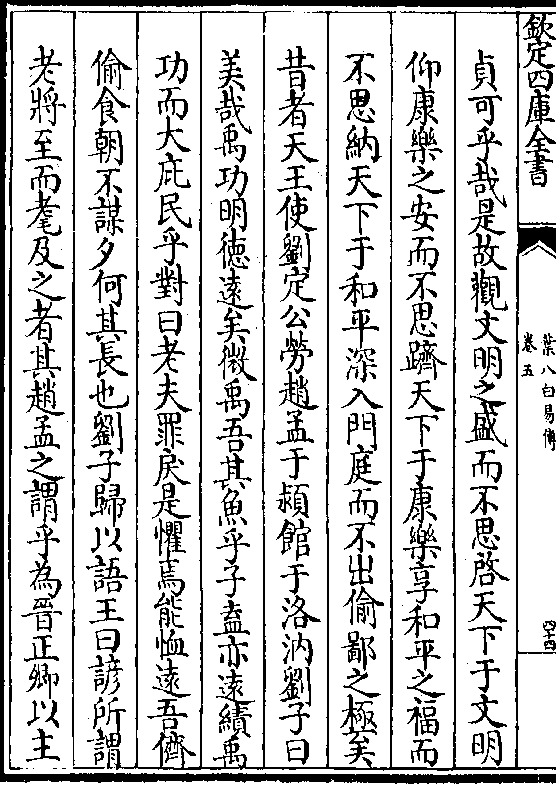 欽定四庫全書
葉八白易傳
卷五
四十四
貞可乎哉是故觀文明之盛而不思啓天下于文明
仰康樂之安而不思躋天下于康樂享和平之福而
不思納天下于和平深入門庭而不出偷鄙之極矣
昔者天王使劉定公勞趙孟于潁館于洛汭劉子曰
美哉禹功明德遠矣微禹吾其魚乎子盍亦遠績禹
功而大庇民乎對曰老夫罪戾是懼焉能恤遠吾儕
偷食朝不謀夕何其長也劉子歸以語王曰諺所謂
老將至而耄及之者其趙孟之謂乎為晉正卿以主